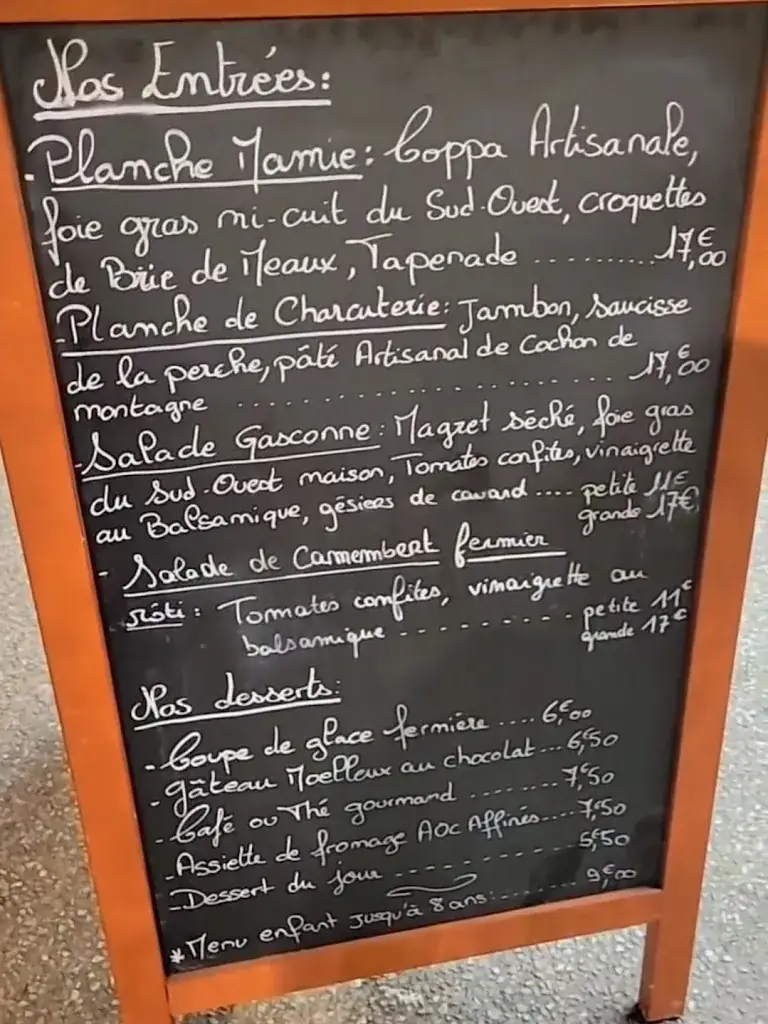 Nos Entrées:
- Planche Mamie: Coppa Artisanale,
foie gras mi-cuit du Sud-Ouest, croquettes
de Brie de Meaux, Tapenade .......... 17,€00
- Planche de Charcuterie: Jambon, saucisse
de la perche, pâté Artisanal de Cochon de
montagne .......................... 17,€00
- Salade Gasconne: Magret séché, foie gras
du Sud-Ouest maison, Tomates confites, vinaigrette
au Balsamique, gésiers de canard .... petite 11€
grande 17€
- Salade de Camembert fermier
rôti: Tomates confites, vinaigrette au
balsamique --------- petite 11€
grande 17€
Nos desserts:
- Coupe de glace fermière .... 6,€00
- gâteau Moelleux au chocolat ... 6,€50
- Café ou Thé gourmand ........ 7,€50
- Assiette de fromage AOC Affinés .... 7,€50
- Dessert du jour ----------- 5,€50
* Menu enfant jusqu'à 8 ans: ....... 9,€00